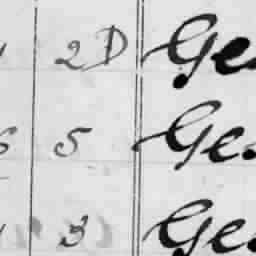 2D Ge
5 Ge
3 Ge